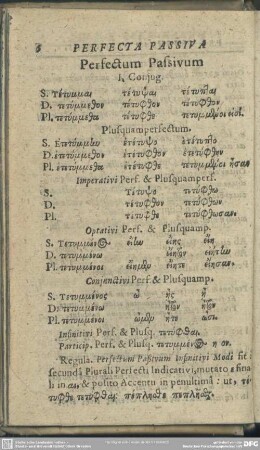 6 PERFECTA PASSIVA
Perfectum Passivum
I. Conjug.
S. Τέτυμμαι τέτυψαι τέτυπται
D. τετύμμεθον τέτυφθον τέτυφθον
Pl. τετύμμεθα τέτυφθε τετυμμένοι εἰσί.
Plusquamperfectum.
S. Ἐτετύμμην ἐτέτυψο ἐτέτυπτο
D. ἐτετύμμεθον ἐτέτυφθον ἐτετύφθην
Pl. ἐτετύμμεθα ἐτέτυφθε τετυμμένοι ἦσαν
Imperativi Perf. & Plusquamperf.
S. Τέτυψο τετύφθω
D. τέτυφθον τετύφθων
Pl. τέτυφθε τετύφθωσαν.
Optativi Perf. & Plusquamp.
S. Τετυμμένος εἴην εἴης εἴη
D. τετυμμένω εἴητον εἰήτην
Pl. τετυμμένοι εἴημεν εἴητε εἴησαν.
Conjunctivi Perf. & Plusquamp.
S. Τετυμμένος ὦ ᾖς ᾖ
D. Τετυμμένω ἦτον ἦτον
Pl. τετυμμένοι ὦμεν ἦτε ὦσι.
Infinitivi Perf. & Plusq. τετύφθαι.
Particip. Perf. & Plusq. τετυμμένος η ον.
Regula. Perfectum Passivum Infinitivi Modi fit à
secundâ Plurali Perfecti Indicativi, mutato ε fina
li in αι, & posito Accentu in penultimâ: ut, τέ
τυφθε τετύφθαι: πέπληχθε πεπλῆχθαι